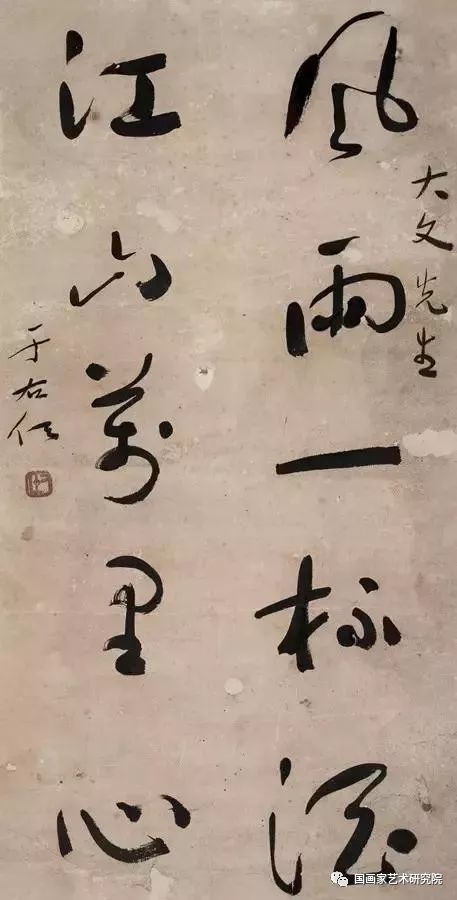 大文先生
風雨一杯酒
江山萬里心
于右任
国画家艺术研究院